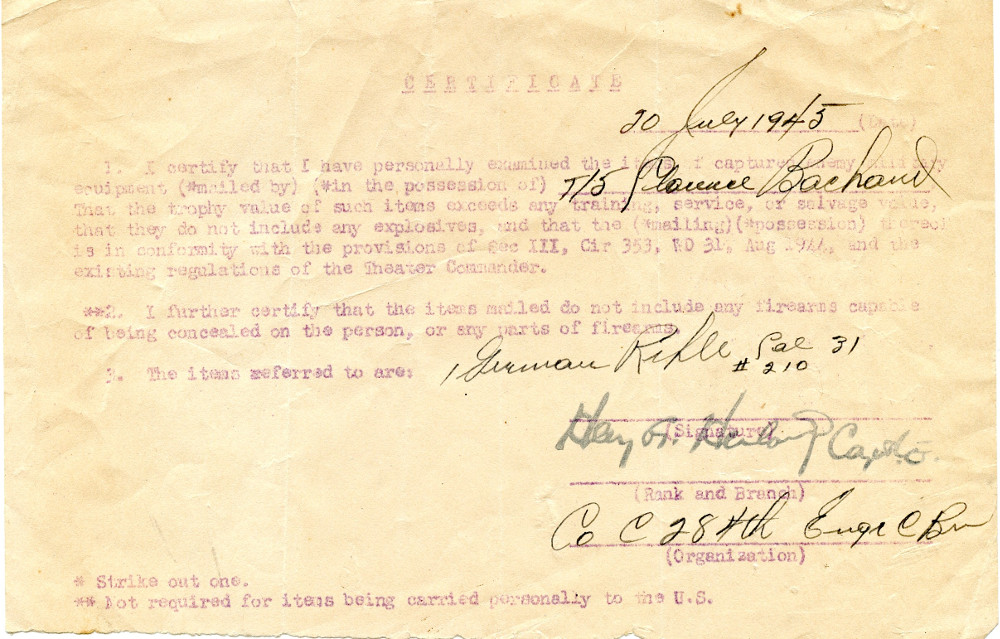 CERTIFICATE
20 July 1945 (Date)
1. I certify that I have personally examined the items of captured enemy military
equipment (*mailed by) (*in the possession of) T/5 Clarence Bachand
That the trophy value of such items exceeds any training, service, or salvage value,
that they do not include any explosives, and that the (*mailing)(*possession) thereof
is in conformity with the provisions of sec III, Cir 353, WD 31, Aug 1944, and the
existing regulations of the Theater Commander.
**2. I further certify that the items mailed do not include any firearms capable
of being concealed on the person, or any parts of firearms.
3. The items referred to are: 1 German Rifle Cal 31
# 210
Capt.
(Signature)
(Rank and Branch)
Co C 284th Engr C Bn
(Organization)
* Strike out one.
** Not required for items being carried personally to the U.S.